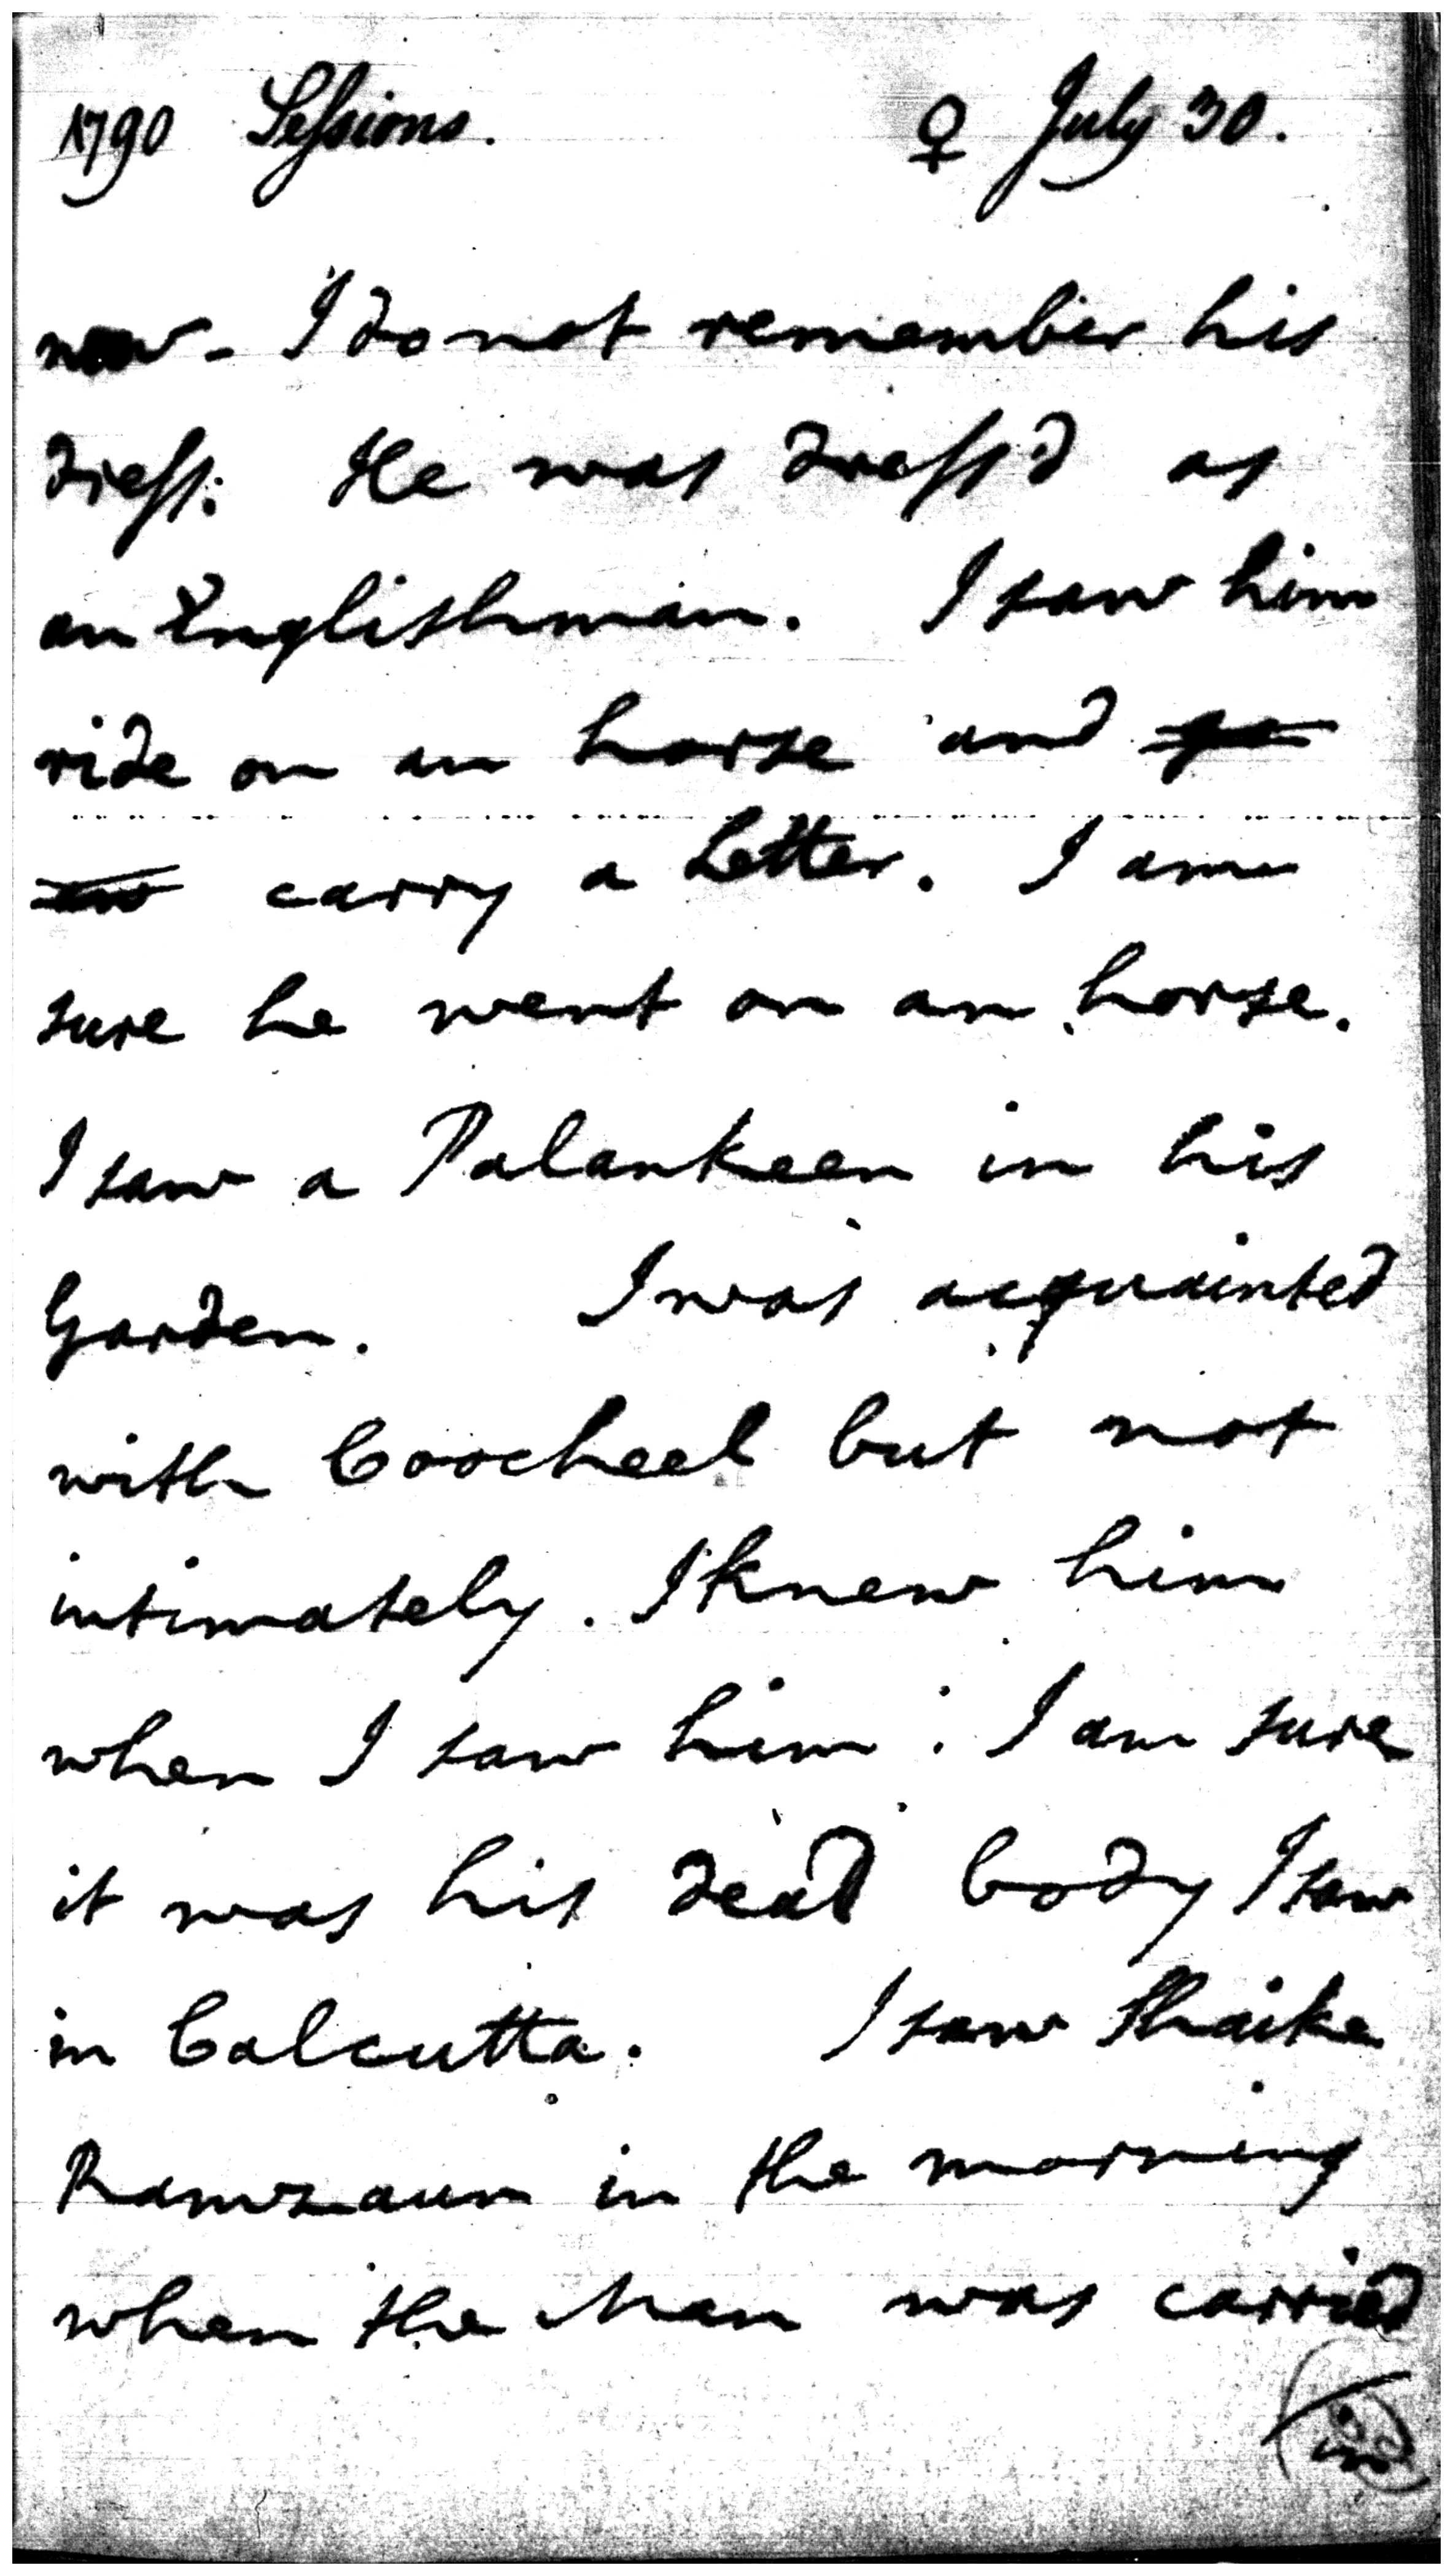 1790 Sessions. ♀ July 30.
now - I do not remember his
dress: He was dress'd as
an Englishman. I saw him
ride on an horse and
carry a Letter. I am
sure he went on an horse.
I saw a Palankeen in his
Garden. I was acquainted
with Coocheel but not
intimately. I knew him
when I saw him: I am sure
it was his dead body I saw
in Calcutta. I saw Shaike
Ramzaun in the morning
when the Man was carried
in